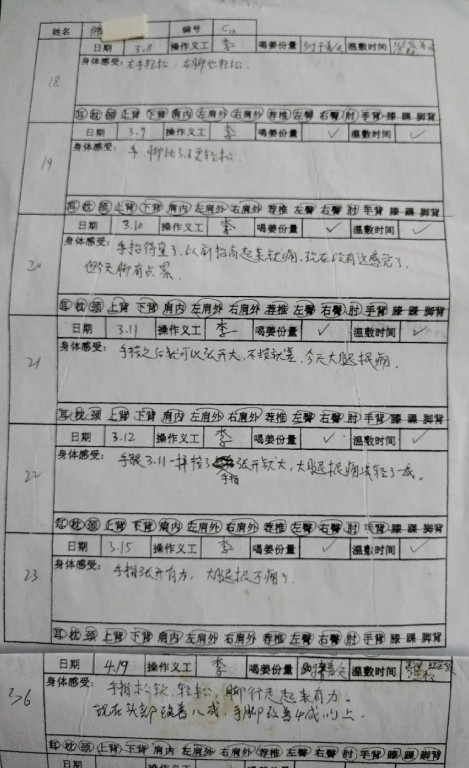 姓名 编号 C13
18
日期 3.8 操作义工 李 喝姜份量 温敷时间
身体感受: 左手轻松,右脚也轻松.
耳 枕 颈 上背 下背 肩内 左肩外 右肩外 荐椎 左臀 右臀 肘 手背 膝 踝 脚背
19
日期 3.9 操作义工 李 喝姜份量 ✓ 温敷时间 ✓
身体感受: 手.脚比3.8更轻松.
耳 枕 颈 上背 下背 肩内 左肩外 右肩外 荐椎 左臀 右臀 肘 手背 膝 踝 脚背
20
日期 3.10 操作义工 李 喝姜份量 ✓ 温敷时间 ✓
身体感受: 手抬得高了,以前抬高起来就痛,现在没有这感觉了.
但今天脚有点紧.
耳 枕 颈 上背 下背 肩内 左肩外 右肩外 荐椎 左臀 右臀 肘 手背 膝 踝 脚背
21
日期 3.11 操作义工 李 喝姜份量 ✓ 温敷时间 ✓
身体感受: 手按之后就可以张开大,不按就差,今天大腿根痛.
耳 枕 颈 上背 下背 肩内 左肩外 右肩外 荐椎 左臀 右臀 肘 手背 膝 踝 脚背
22
日期 3.12 操作义工 李 喝姜份量 ✓ 温敷时间 ✓
身体感受: 手跟3.11一样按了手指张开较大,大腿根痛减轻了一成。
耳 枕 颈 上背 下背 肩内 左肩外 右肩外 荐椎 左臀 右臀 肘 手背 膝 踝 脚背
23
日期 3.15 操作义工 李 喝姜份量 ✓ 温敷时间 ✓
身体感受: 手指张开有力,大腿根不痛了.
耳 枕 颈 上背 下背 肩内 左肩外 右肩外 荐椎 左臀 右臀 肘 手背 膝 踝 脚背
36
日期 4.19 操作义工 李 喝姜份量 温敷时间
身体感受: 手指松软.轻松,脚行走起来有力。
现在头部改善八成,手脚改善4成以上.
耳 枕 颈 上背 下背 肩内 左肩外 右肩外 荐椎 左臀 右臀 肘 手背 膝 踝 脚背